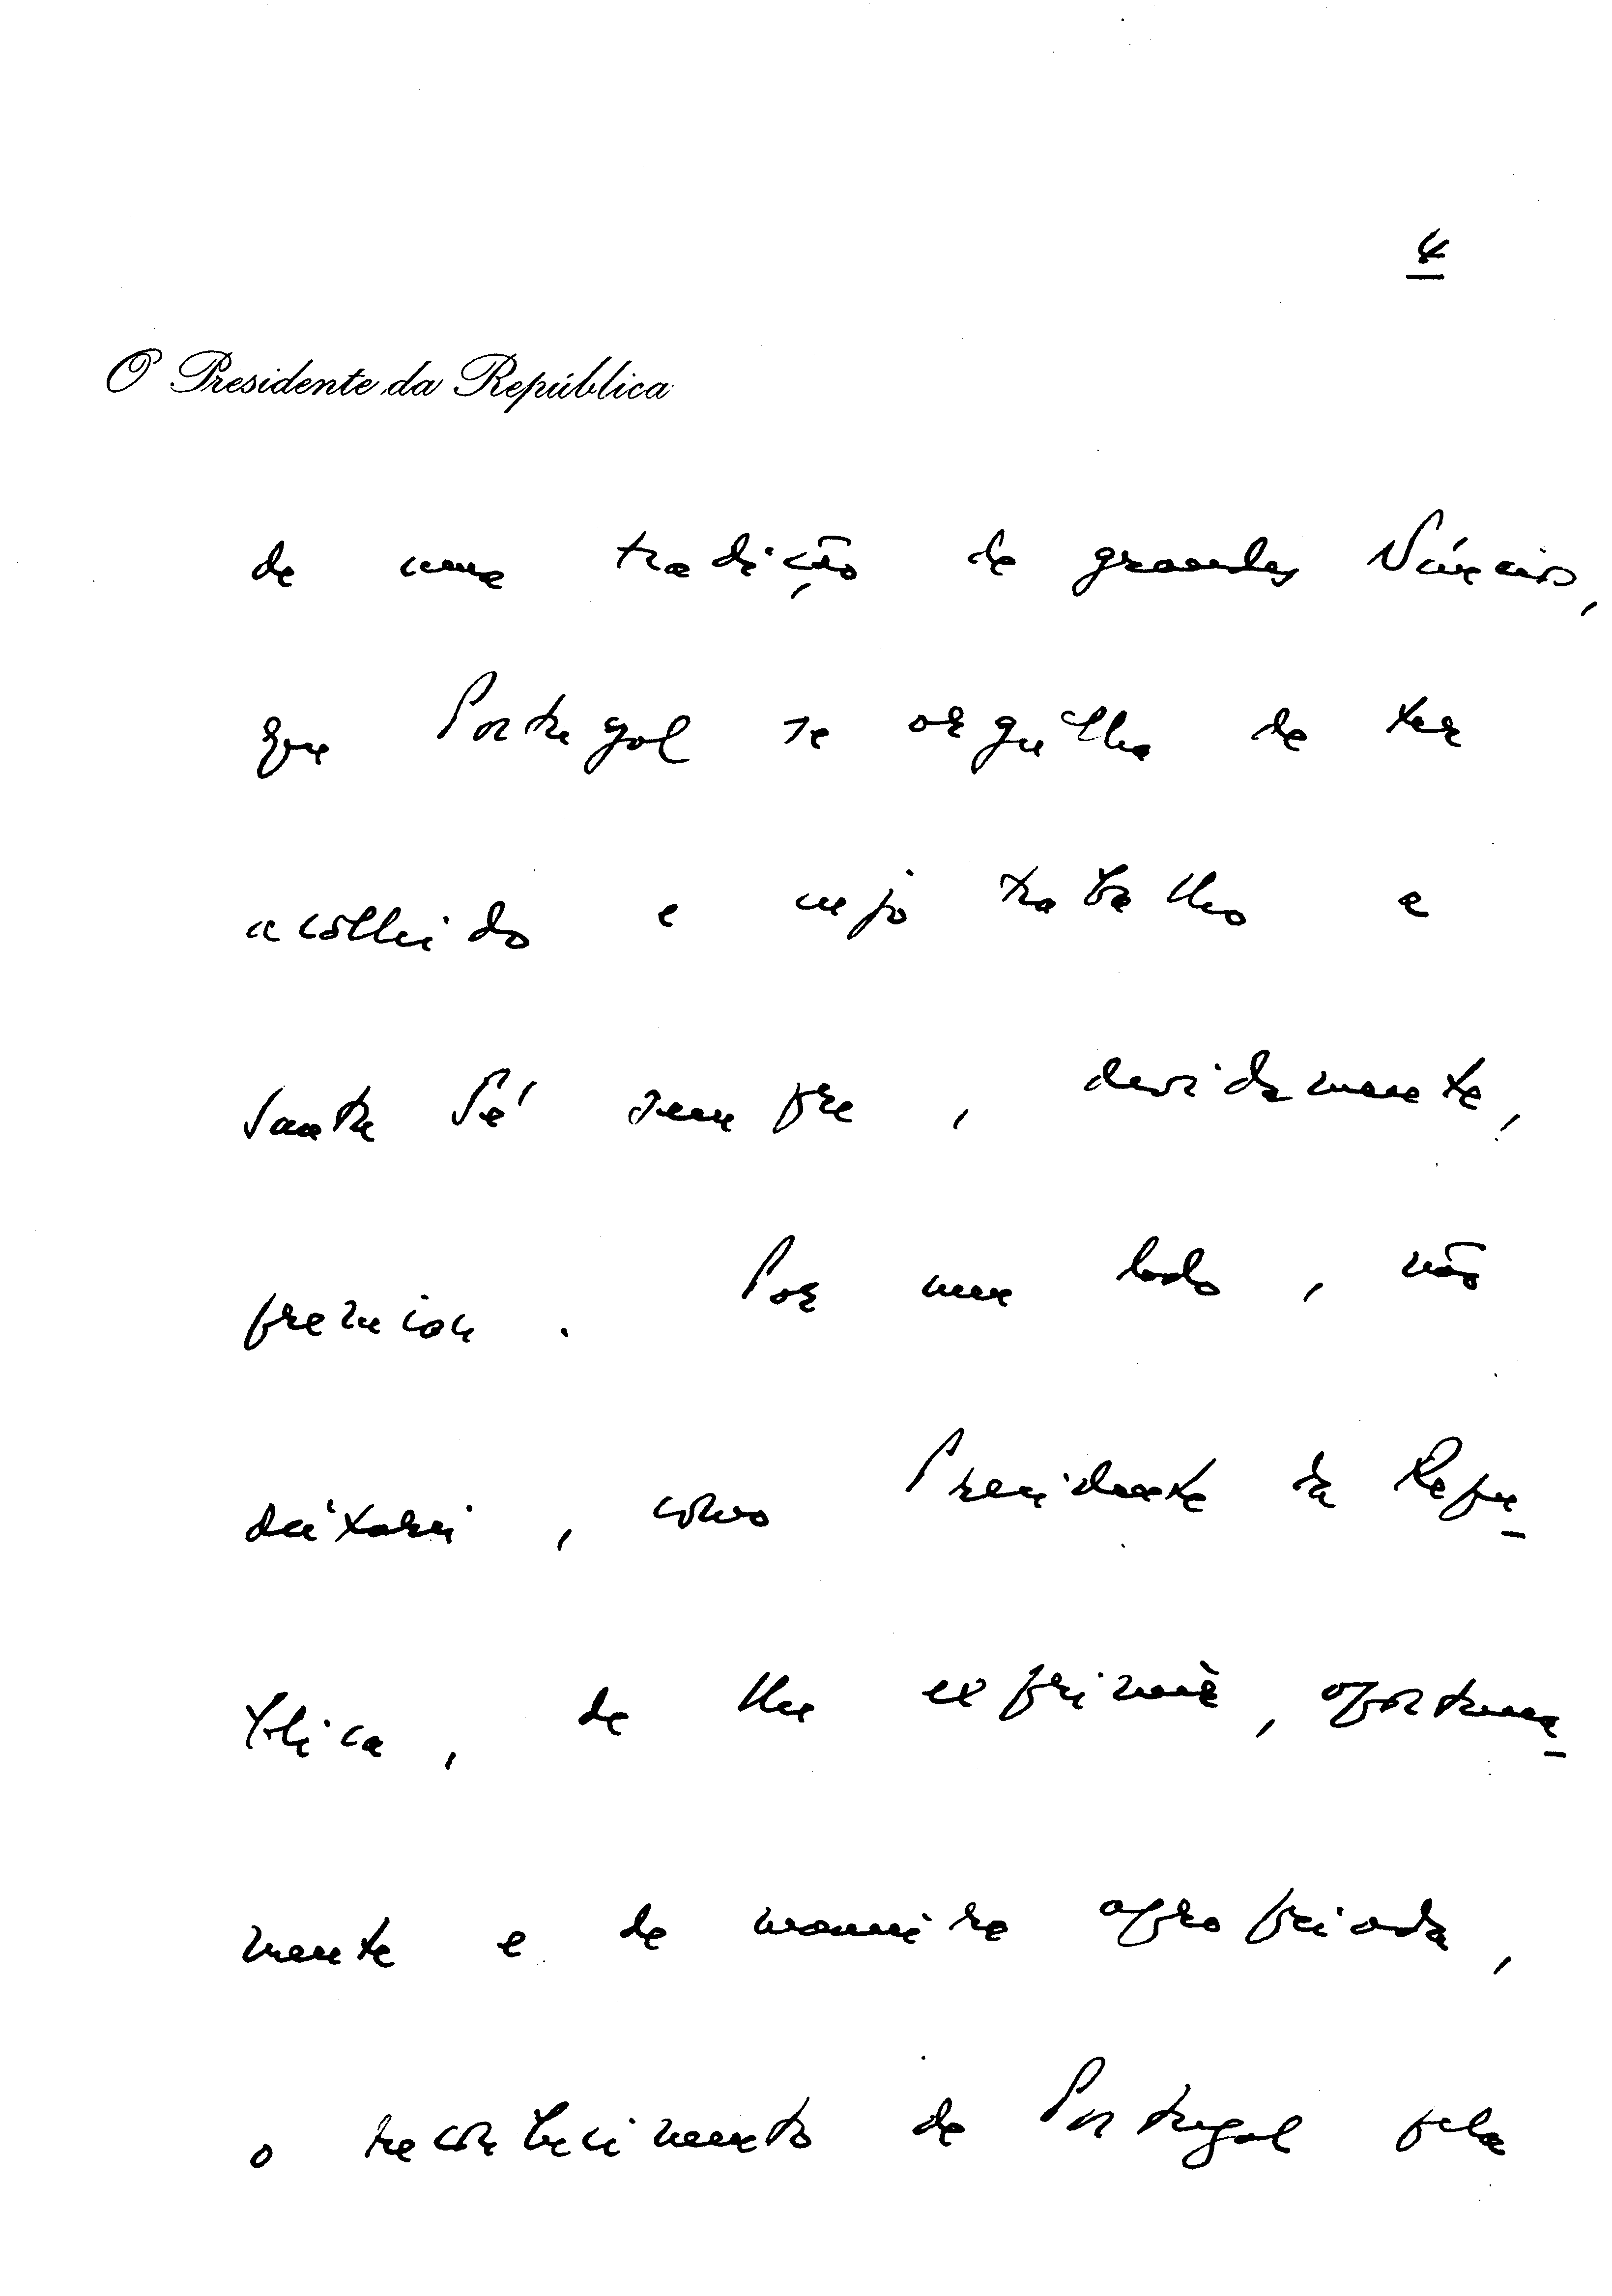 4
O Presidente da República
de uma tradição de grandes Núncios,
que Portugal se orgulha de ter
acolhido e cujo trabalho a
Santa Sé sempre, devidamente,
premiou. Por um lado, não
deixarei, como Presidente da Repu_
blica, de lhe exprimir, oportuna_
mente e de maneira apropriada,
o reconhecimento de Portugal pela